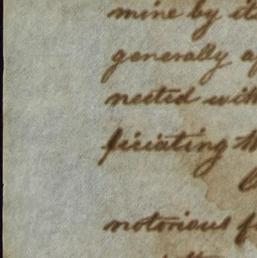 mine by it
generally a
nected with
ficiating
notorious f